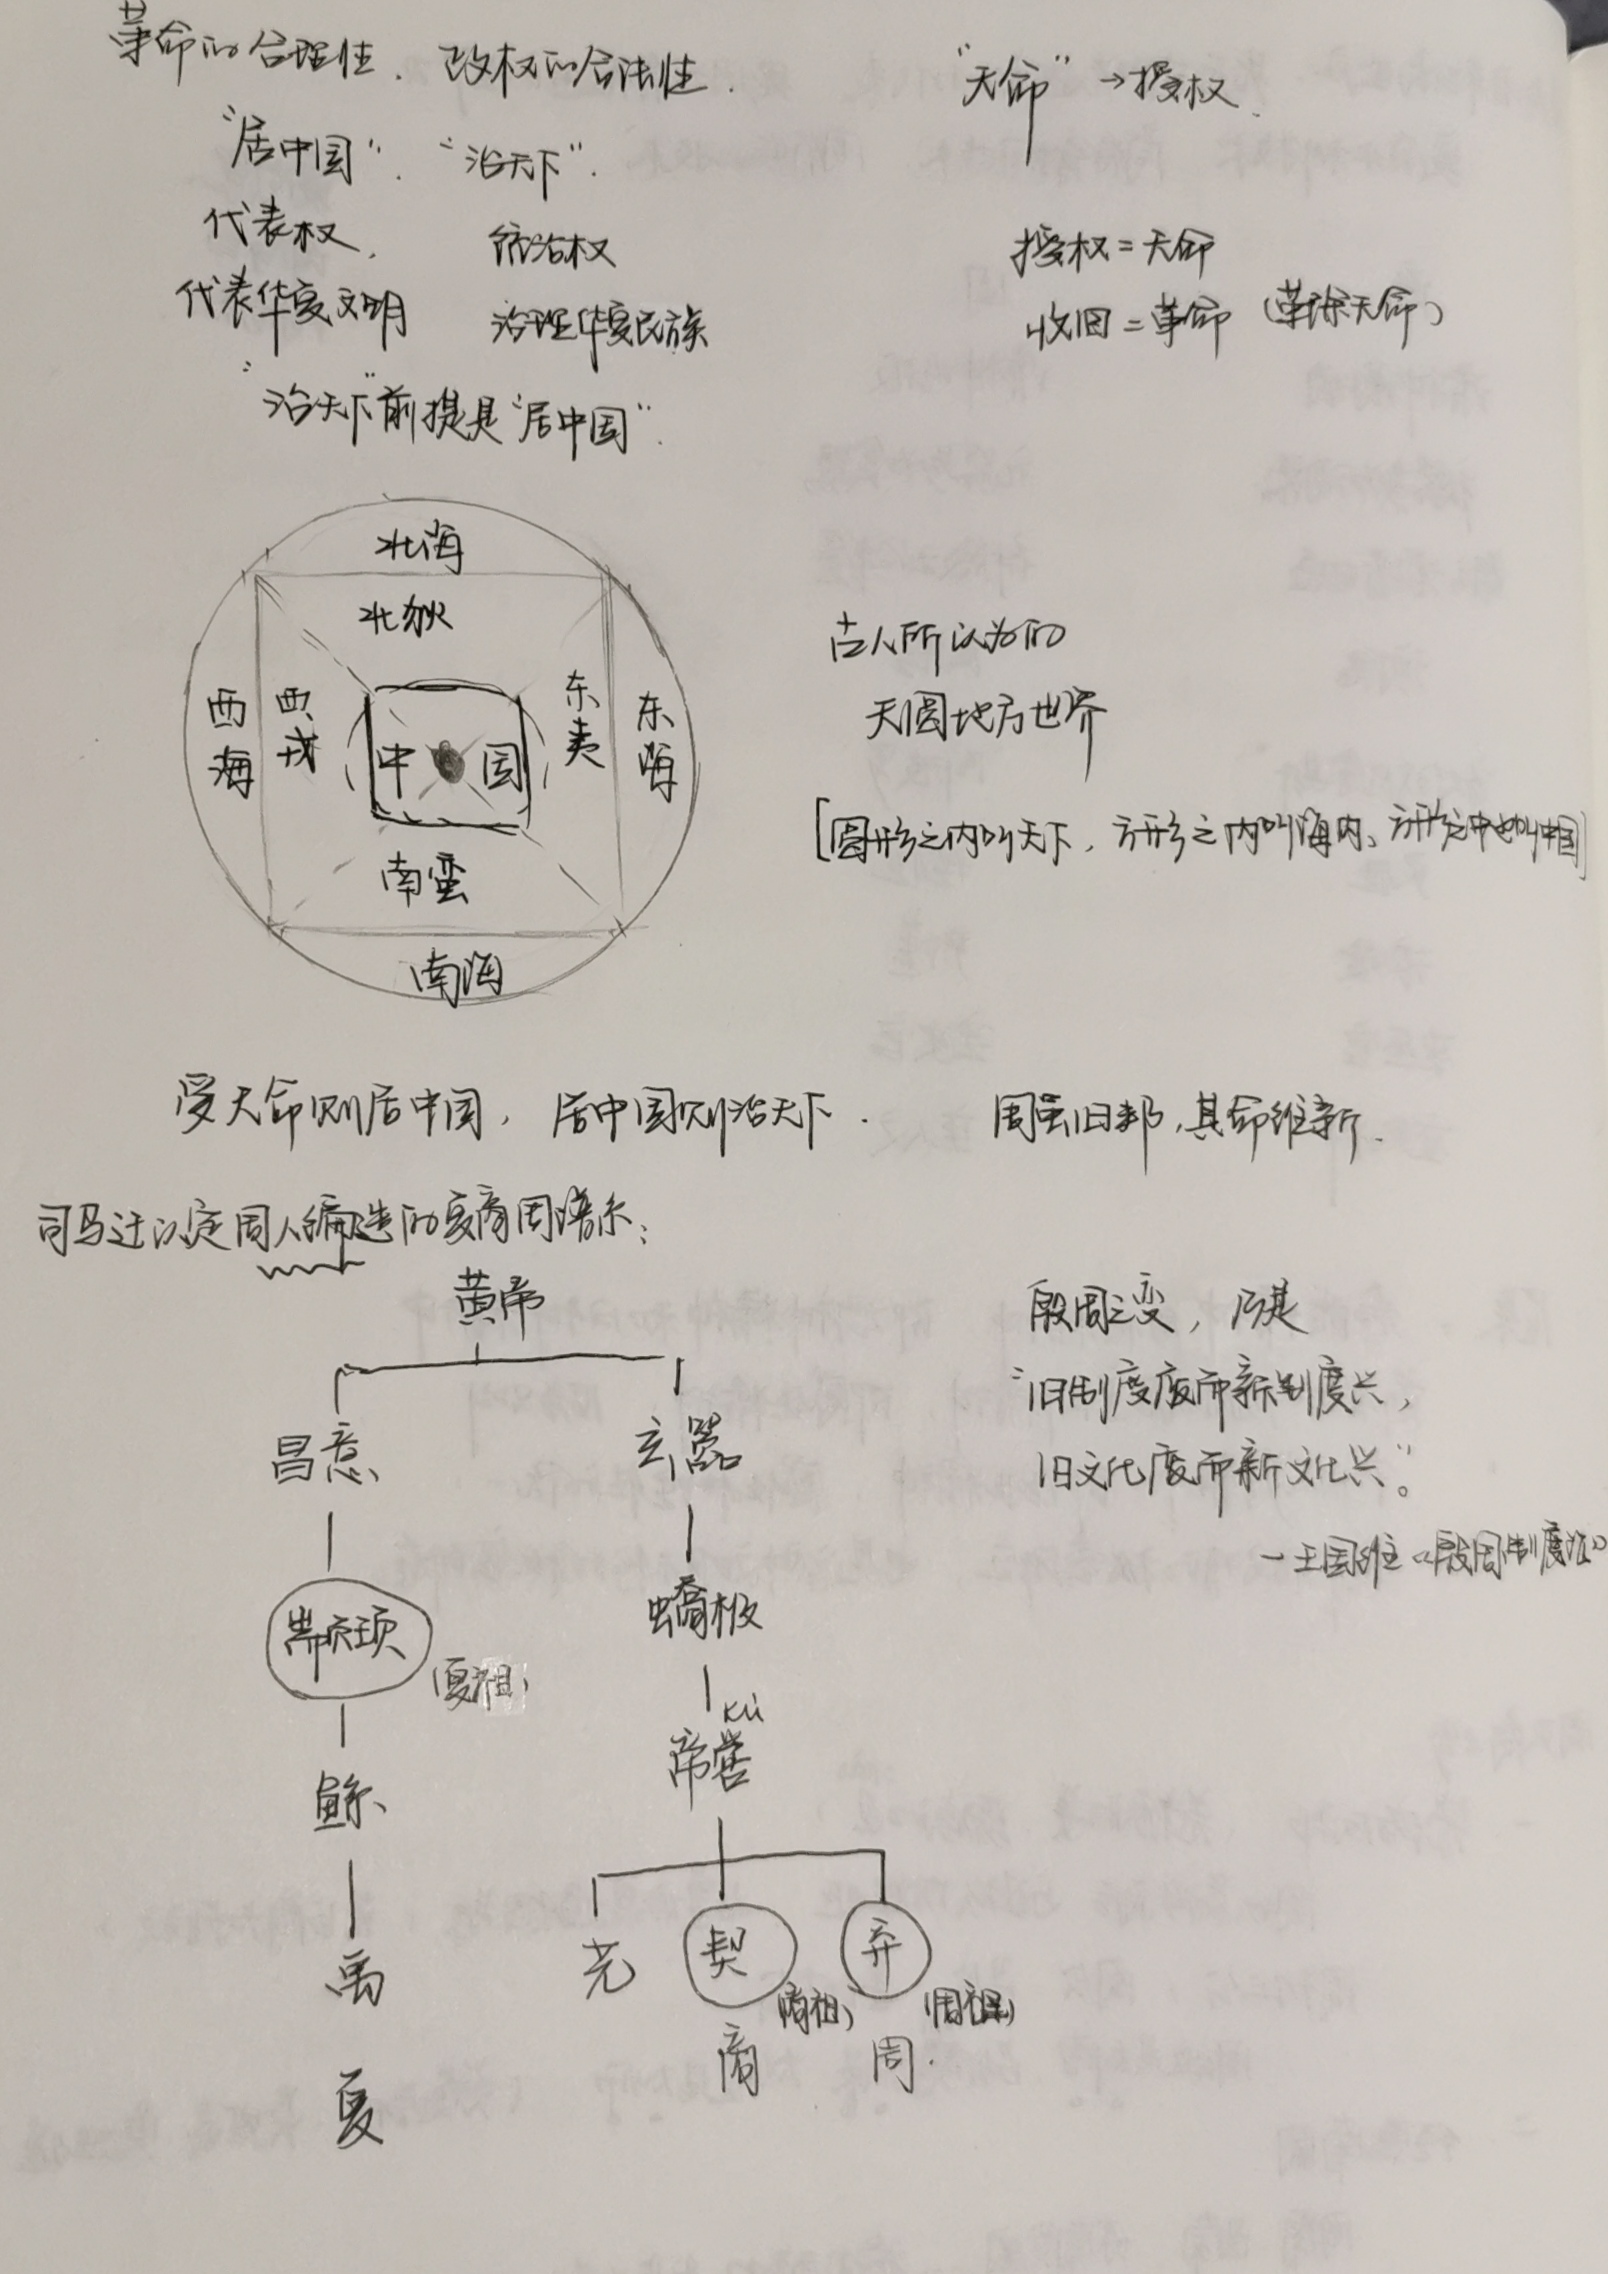 革命的合理性、政权的合法性.
"天命"→授权.
"居中国". "治天下".
代表权, 统治权
授权=天命
代表华夏文明 治理华夏民族
收回=革命(革除天命)
"治天下"前提是"居中国".
北海
北狄
西海 西戎 中国 东夷 东海
南蛮
南海
古人所认为的
天圆地方世界
[圆形之内叫天下,方形之内叫海内、方形之中也叫中国]
受天命则居中国,居中国则治天下.
周虽旧邦,其命维新.
司马迁认定周人编造的夏商周谱系:
黄帝
昌意 玄嚣
殷周之变,乃是
"旧制度废而新制度兴,
旧文化废而新文化兴"。
—王国维《殷周制度论》
颛顼 (夏祖) 蟜极
kù
鲧 帝喾
禹 尧 契 (商祖) 弃 (周祖)
夏 商 周.